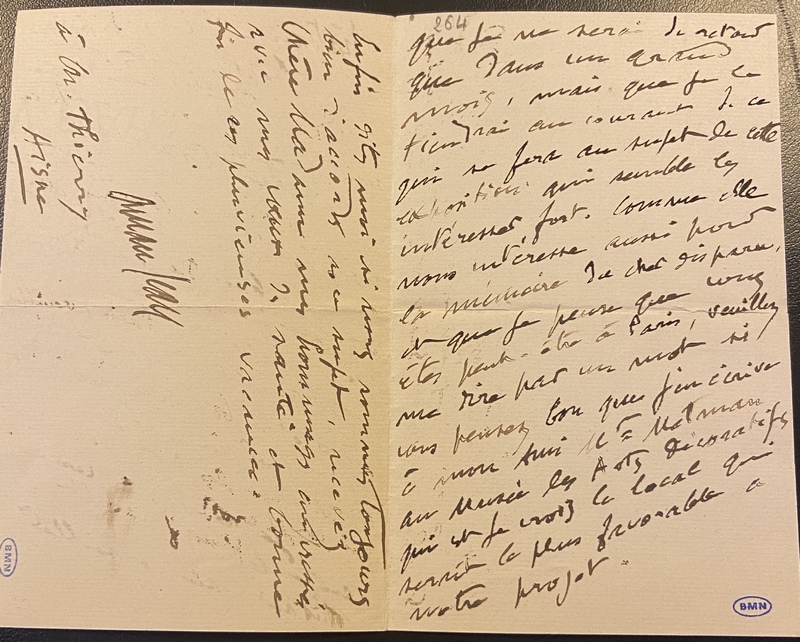 264
que je ne serai de retour
que dans un grand
mois, mais que je le
tiendrai au courant de ce
qui se fera au sujet de cette
exposition qui semble les
intéresser fort. Comme elle
nous intéresse aussi pour
la mémoire du cher disparu,
et que je pense que vous
êtes peut-être à Paris, veuillez
me dire par un mot si
vous pensez bon que j'en écrive
à mon ami Mr Metman
au Musée des Arts décoratifs
qui est je crois le local qui
serait le plus favorable à
notre projet.
Enfin dites moi si nous sommes toujours
bien d'accord à ce sujet, recevez
Chère Madame mes hommages
avec mes vœux de santé et bonne
fin de ces pluvieuses vacances.
à M. Thierry
Aisne
BMN
BMN